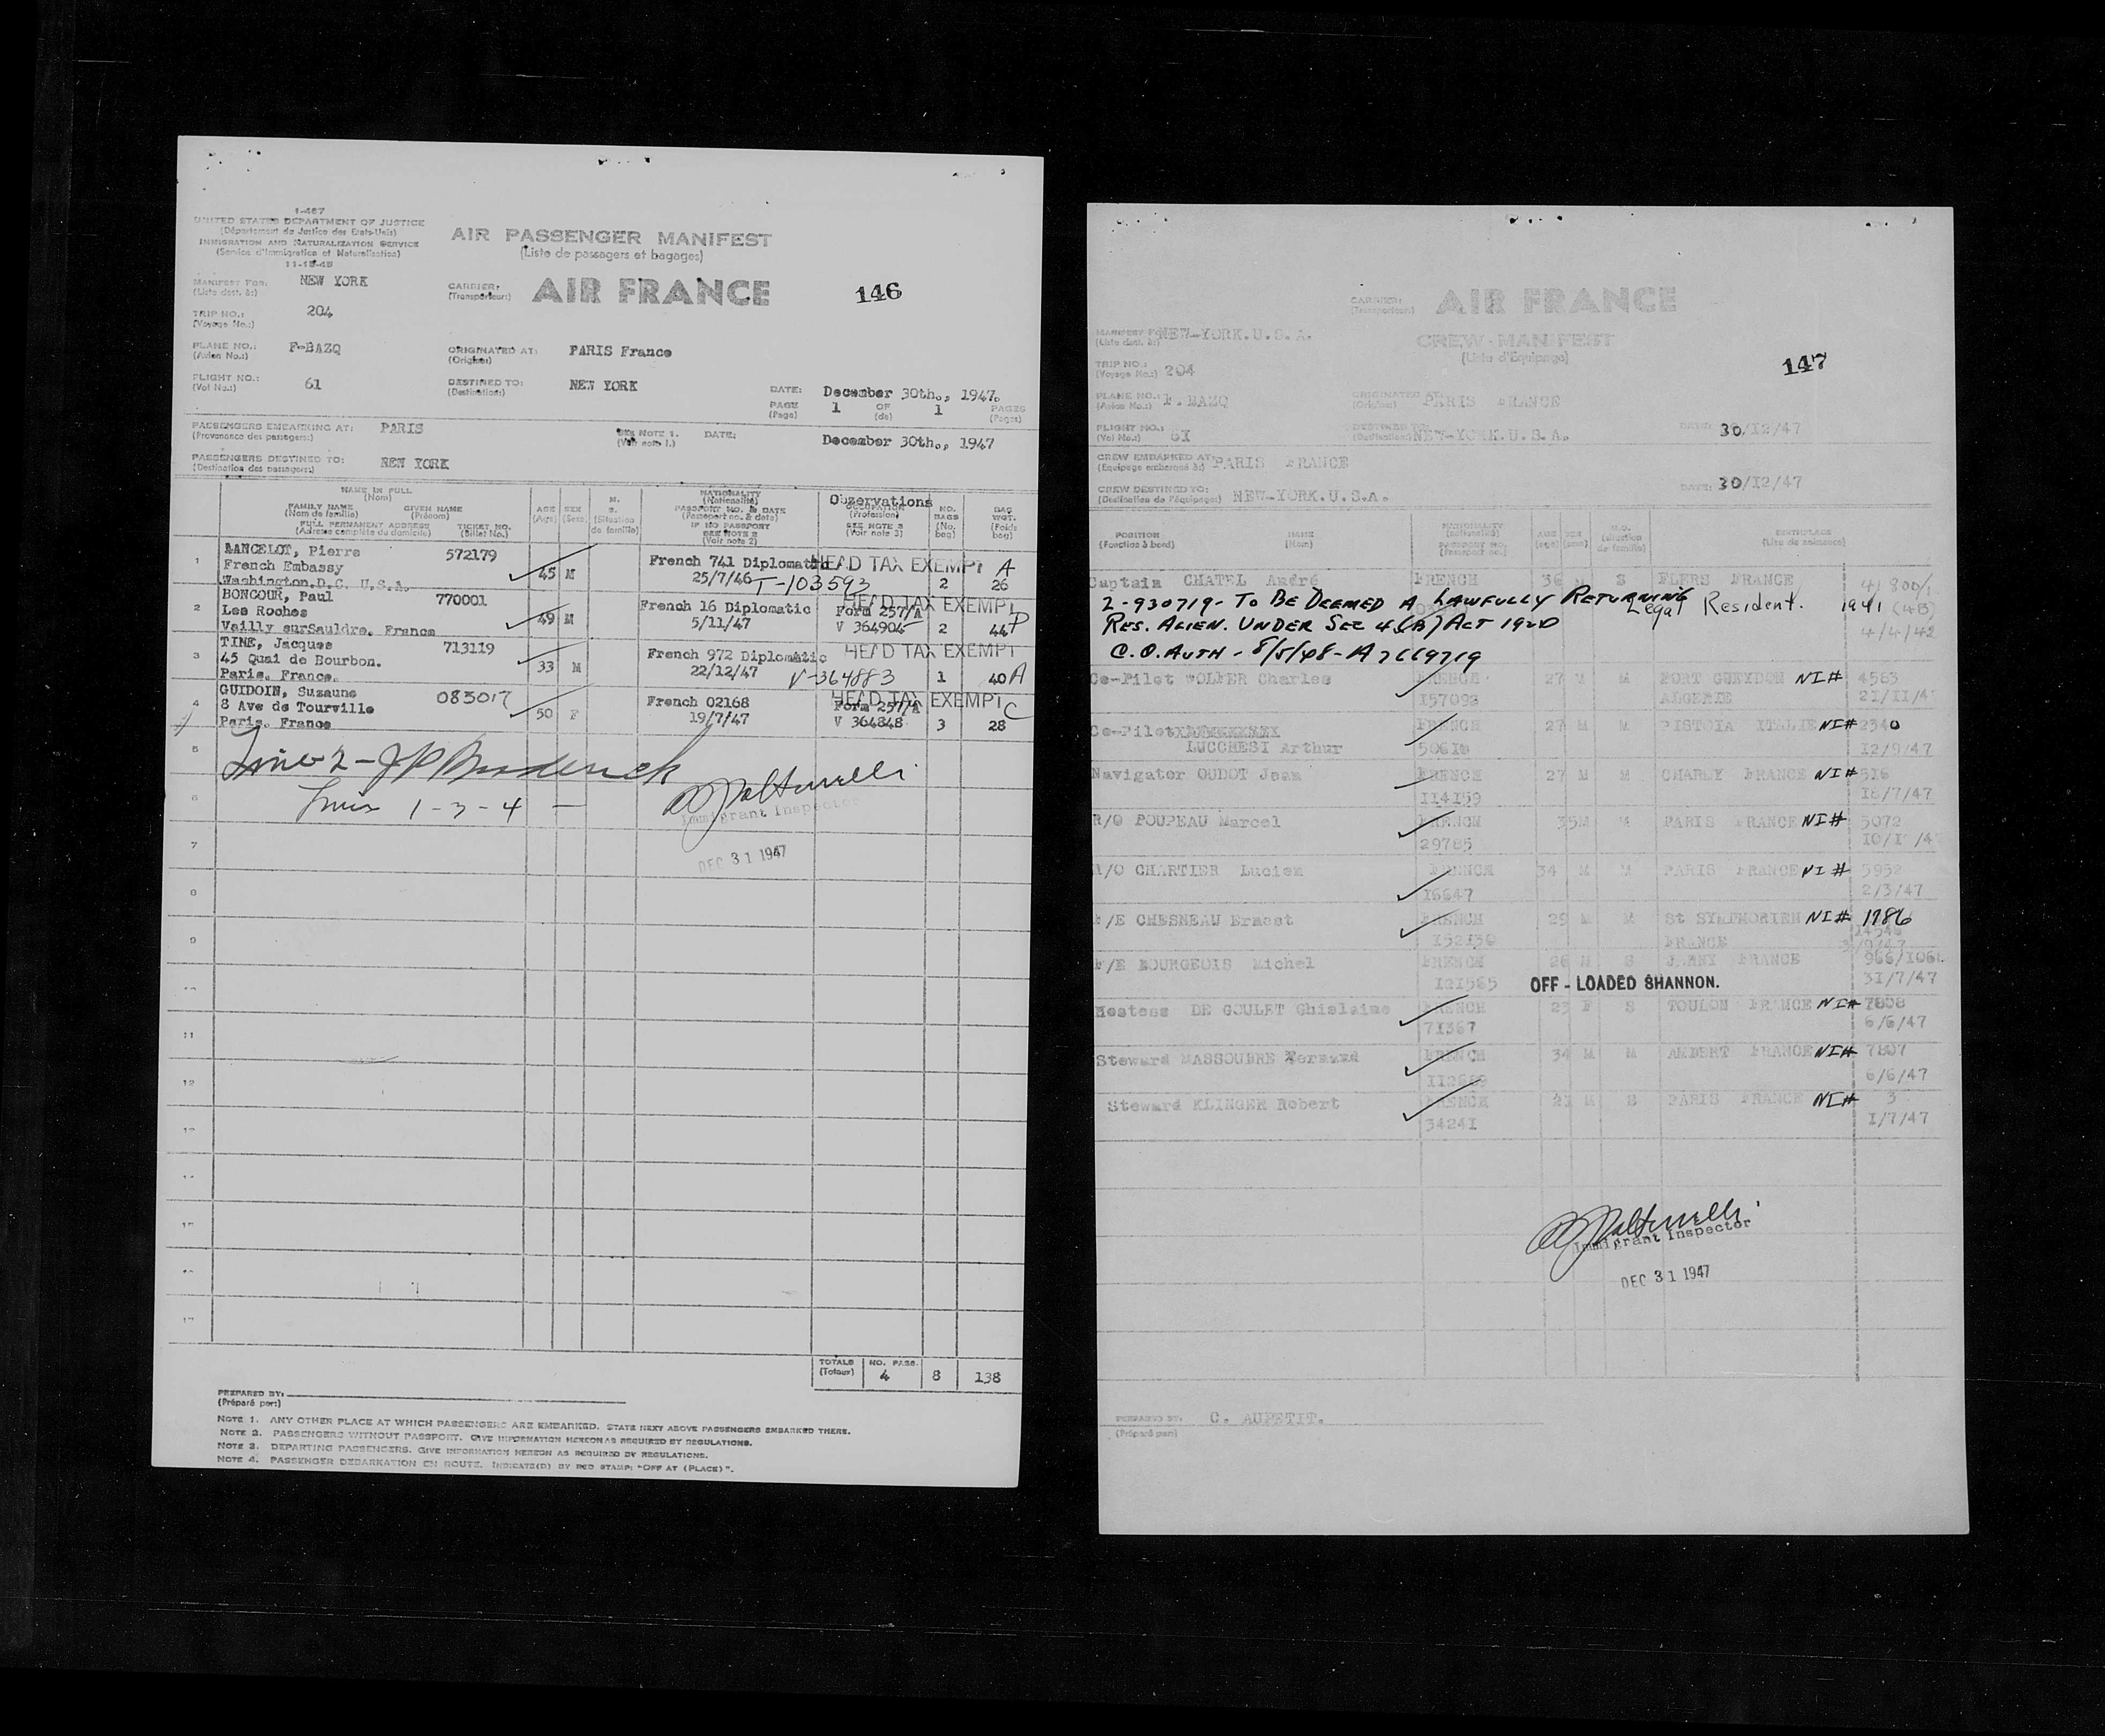 I-467
UNITED STATES DEPARTMENT OF JUSTICE
(Département de Justice des Etats-Unis)
IMMIGRATION AND NATURALIZATION SERVICE
(Service d'Immigration et Naturalisation)
11-15-45
AIR PASSENGER MANIFEST
(Liste de passagers et bagages)
MANIFEST FOR: NEW YORK
(Liste dest. à:)
CARRIER: AIR FRANCE
(Transporteur:)
146
TRIP NO.: 204
(Voyage No.:)
PLANE NO.: F-BAZQ
(Avion No.:)
ORIGINATED AT: PARIS France
(Origine:)
FLIGHT NO.: 61
(Vol No.:)
DESTINED TO: NEW YORK
(Destination:)
DATE: December 30th., 1947.
PAGE 1 OF 1 PAGES
(Page) (de) (Pages)
PASSENGERS EMBARKING AT: PARIS
(Provenance des passagers:)
SEE NOTE 1. DATE: December 30th., 1947
(Voir note 1.)
PASSENGERS DESTINED TO: NEW YORK
(Destination des passagers:)
NAME IN FULL
(Nom)
FAMILY NAME GIVEN NAME
(Nom de famille) (Prénom)
FULL PERMANENT ADDRESS TICKET NO.
(Adresse complète du domicile) (Billet No.)
AGE
(Age)
SEX
(Sexe)
M.
S.
(Situation
de famille)
NATIONALITY
(Nationalité)
PASSPORT NO. & DATE
(Passeport no. & date)
IF NO PASSPORT
SEE NOTE 2
(Voir note 2)
Observations
OCCUPATION
(Profession)
SEE NOTE 3
(Voir note 3)
NO.
BAGS
(No.
bag)
BAG
WGT.
(Poids
bag)
1 LANCELOT, Pierre 572179 French 741 Diplomatic HEAD TAX EXEMPT A
French Embassy 45 M 25/7/46 T-103593 2 26
Washington.D.C. U.S.A.
2 BONCOUR, Paul 770001 French 16 Diplomatic HEAD TAX EXEMPT
Les Roches 49 M 5/11/47 Form 257/A P
Vailly surSauldre. France V 364904 2 44
3 TINE, Jacques 713119 French 972 Diplomatic HEAD TAX EXEMPT
45 Quai de Bourbon. 33 M 22/12/47 V-364883 1 40 A
Paris. France.
4 GUIDOIN, Suzanne 083017 French 02168 HEAD TAX EXEMPT
8 Ave de Tourville 50 F 19/7/47 Form 257/A C
Paris. France V 364848 3 28
5
Line 2 - JP Broderick
6
Lines 1-3-4 -
Immigrant Inspector
7
DEC 31 1947
8
9
10
11
12
13
14
15
16
17
TOTALS NO. PASS.
(Totaux) 4 8 138
PREPARED BY:
(Préparé par:)
NOTE 1. ANY OTHER PLACE AT WHICH PASSENGERS ARE EMBARKED. STATE NEXT ABOVE PASSENGERS EMBARKED THERE.
NOTE 2. PASSENGERS WITHOUT PASSPORT. GIVE INFORMATION HEREON AS REQUIRED BY REGULATIONS.
NOTE 3. DEPARTING PASSENGERS. GIVE INFORMATION HEREON AS REQUIRED BY REGULATIONS.
NOTE 4. PASSENGER DEBARKATION EN ROUTE. INDICATE(D) BY RED STAMP: "OFF AT (PLACE)".
CARRIER: AIR FRANCE
(Transporteur:)
MANIFEST FOR: NEW-YORK.U.S.A.
(Liste dest. à:)
CREW MANIFEST
(Liste d'Equipage)
147
TRIP NO.:
(Voyage No.:) 204
PLANE NO.: F.BAZQ
(Avion No.:)
ORIGINATED AT: PARIS FRANCE
(Origine:)
FLIGHT NO.: 61
(Vol No.:)
DESTINED TO: NEW-YORK.U.S.A.
(Destination:)
DATE: 30/12/47
CREW EMBARKED AT: PARIS FRANCE
(Equipage embarqué à:)
CREW DESTINED TO: NEW-YORK.U.S.A.
(Destination de l'équipage:)
DATE: 30/12/47
POSITION
(Fonction à bord)
NAME
(Nom)
NATIONALITY
(Nationalité)
PASSPORT NO.
(Passeport no.)
AGE
(age)
SEX
(sexe)
M.S.
(situation
de famille)
BIRTHPLACE
(Lieu de naissance)
Captain CHATEL André FRENCH 36 M S FLERS FRANCE 41 800/1
2-930719- TO BE DEEMED A LAWFULLY RETURNING Legal Resident. 1941 (4B)
RES. ALIEN. UNDER SEC 4(B) ACT 1924 4/4/42
C.O. AUTH - 8/5/48 - A 7669719
Co-Pilot WOLFER Charles FRENCH 27 M M FORT GUEYDON NI# 4583
157092 ALGERIE 21/11/4
Co-Pilot FRENCH 27 M M PISTOIA ITALIE NI# 2340
LUCCHESI Arthur 50618 12/9/47
Navigator OUDOT Jean FRENCH 27 M M CHARLY FRANCE NI# 516
114159 18/7/47
R/O POUPEAU Marcel FRENCH 35 M M PARIS FRANCE NI# 5072
29785
R/O CHARTIER Lucien FRENCH 34 M M PARIS FRANCE NI# 5952
16647 2/3/47
F/E CHESNEAU Ernest FRENCH 29 M M St SYMPHORIEN NI# 1786
152130 FRANCE
F/E BOURGEOIS Michel FRENCH 26 M S JARNY FRANCE 966/106
121565 OFF - LOADED SHANNON. 31/7/47
Hostess DE GOULET Ghislaine FRENCH 23 F S TOULON FRANCE NI# 7808
71367 6/6/47
Steward MASSOUBRE Fernand FRENCH 34 M M AMBERT FRANCE NI# 7807
6/6/47
Steward KLINGER Robert FRENCH 23 M S PARIS FRANCE NI# 3
34241 1/7/47
Immigrant Inspector
DEC 31 1947
PREPARED BY: C. AUPETIT.
(Préparé par:)